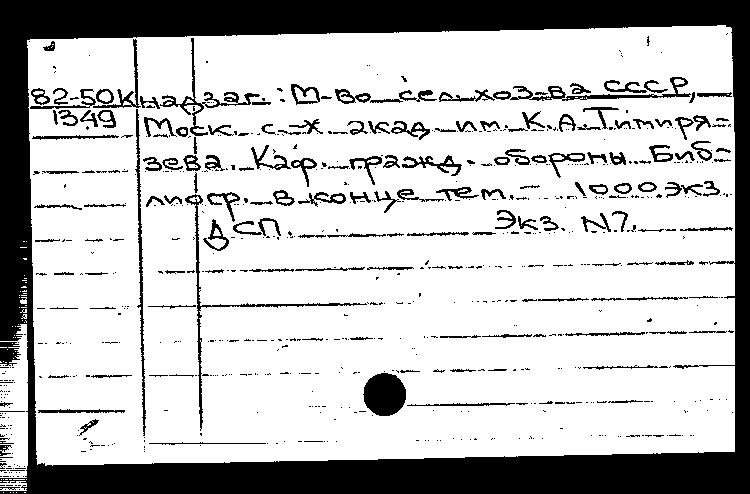 82-50К надзаг.: М-во сел. хоз-ва СССР,
1349 Моск. с.-х. акад. им. К.А.Тимиря-
зева. Каф. гражд. обороны. Биб-
лиогр. в конце тем. - 1000 экз.
ДСП. Экз. N7.